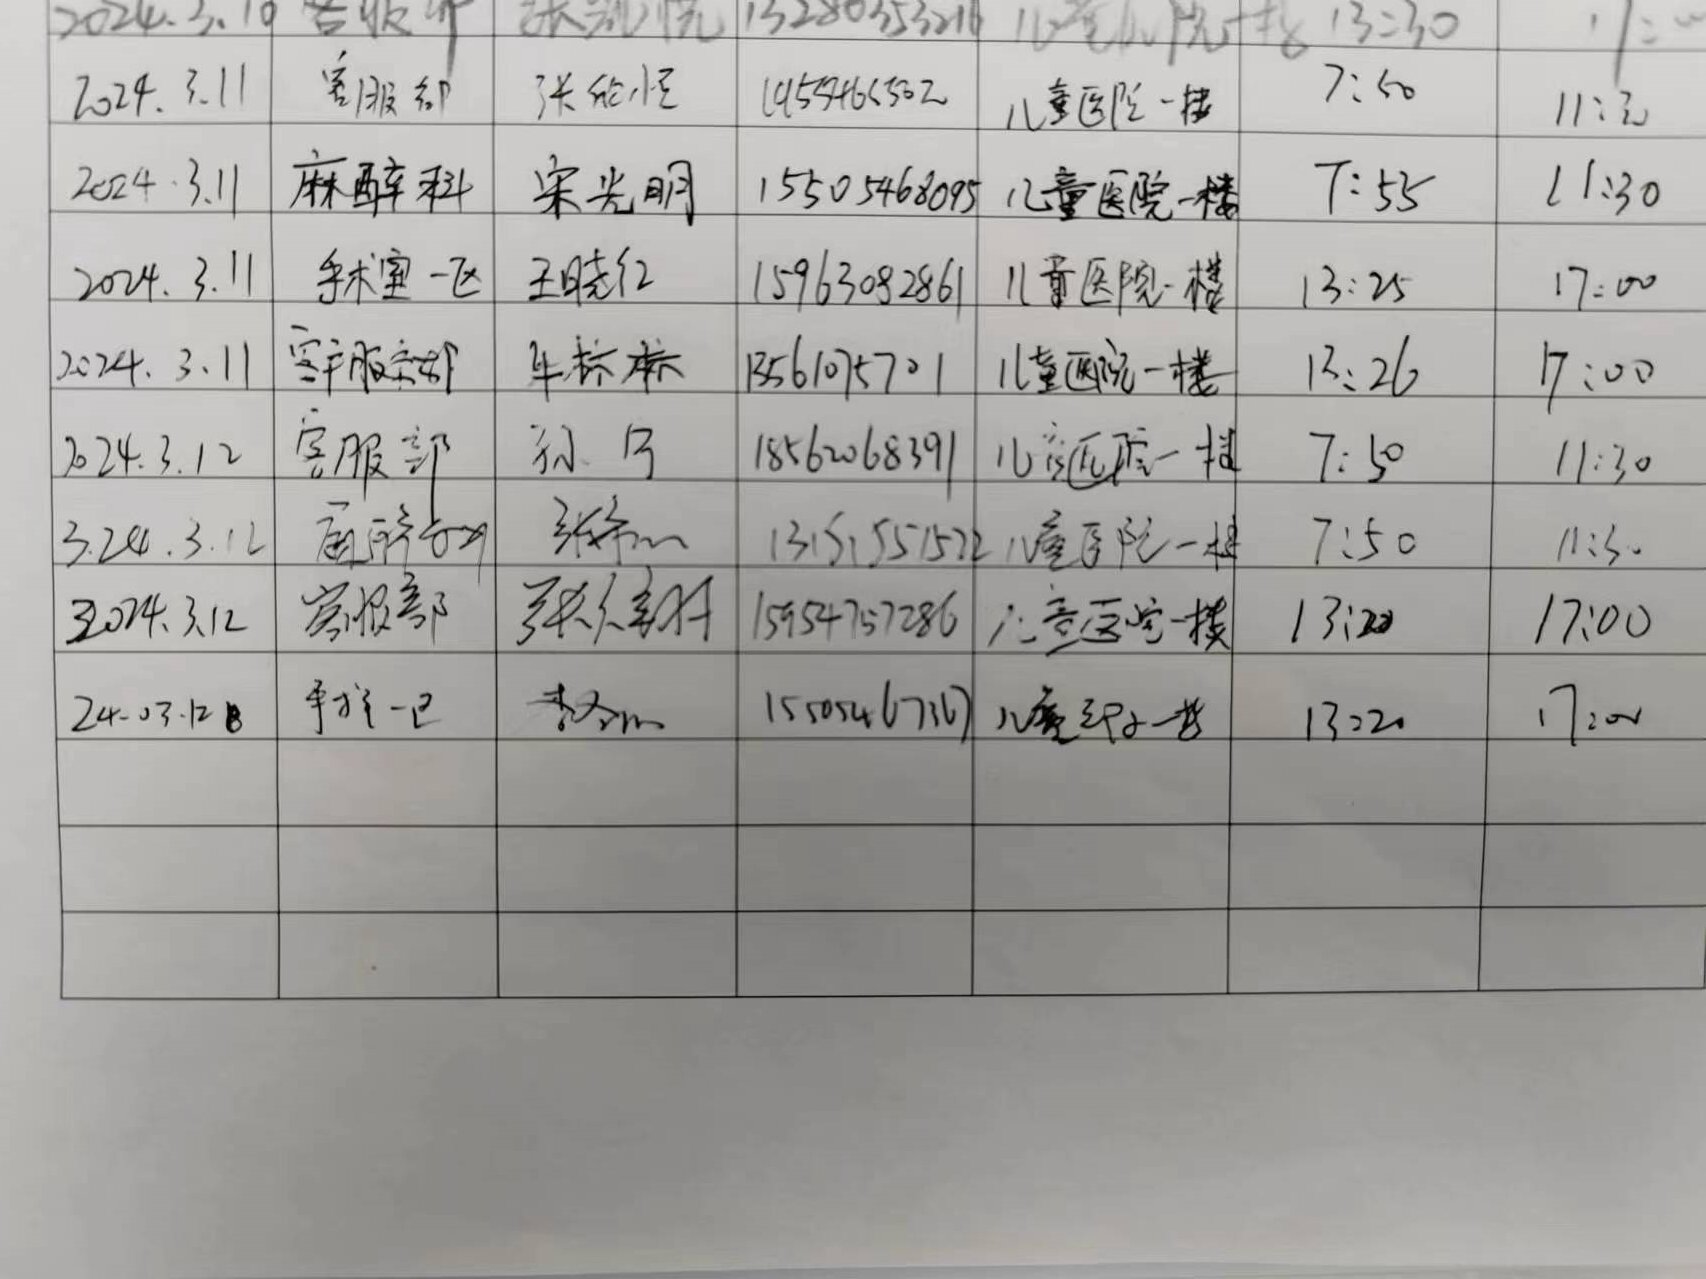 2024.3.10 客服部 13280353216 儿童医院一楼 13:30
2024.3.11 客服部 儿童医院一楼 7:50 11:30
2024.3.11 麻醉科 宋光明 15505468095 儿童医院一楼 7:55 11:30
2024.3.11 手术室一区 王晓红 15963082861 儿童医院一楼 13:25 17:00
2024.3.11 客户服务部 牛标标 13561075701 儿童医院一楼 13:26 17:00
2024.3.12 客服部 18562068391 儿童医院一楼 7:50 11:30
3.24.3.12 儿童医院一楼 7:50 11:30
2024.3.12 客服部 15954757286 儿童医院一楼 13:20 17:00
24-03.12 一区 15505467367 儿童 一楼 13:20 17:00